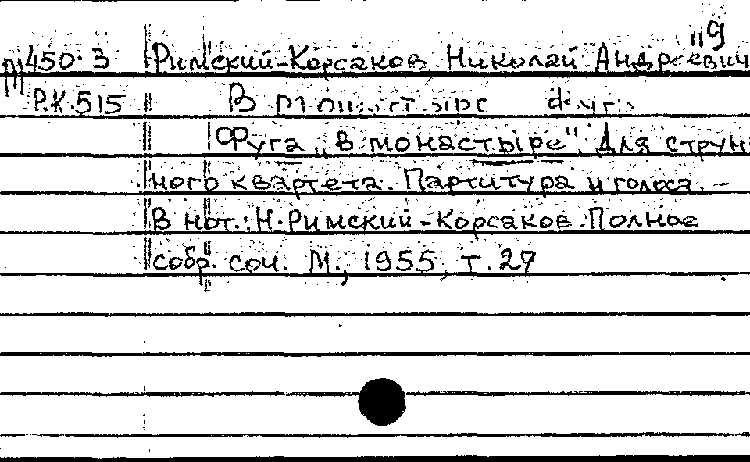 "9
m 450.3 Римский-Корсаков, Николай Андреевич
Р.К.515 В монастыре
Фуга „в монастыре". Для струн-
ного квартета. Партитура и голоса. –
В нот.: Н. Римский-Корсаков. Полное
собр. соч. М., 1955, т. 27